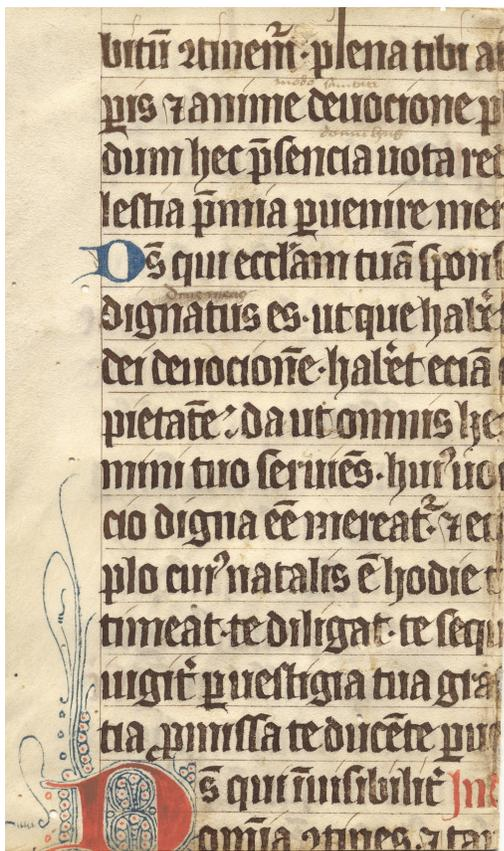 bitū ꝯtinem̄· plena tibi a
ꝑis ⁊ anime deuocione p
dum hec p̄sencia uota red
lestia p̄mia ꝑuenire mer
Ds̄ qui eccl̓am tuā spons
dignatus es· ut que hab̓
dei deuocion̄e· hab̓et eciā
pietat̄e· da ut omnis he
mini tuo seruiēs· huiꝰ uo
cio digna ēē mereat᷑· ⁊ ei
plo cuiꝰ natalis ē hodie t
timeat· te diligat· te sequ
uigit᷑ ꝑ uestigia tua gra
tia ꝓmissa te ducēte ꝑue
Ds̄ qui īuisibilit᷑ In
omīa ꝯtines ⁊ tam